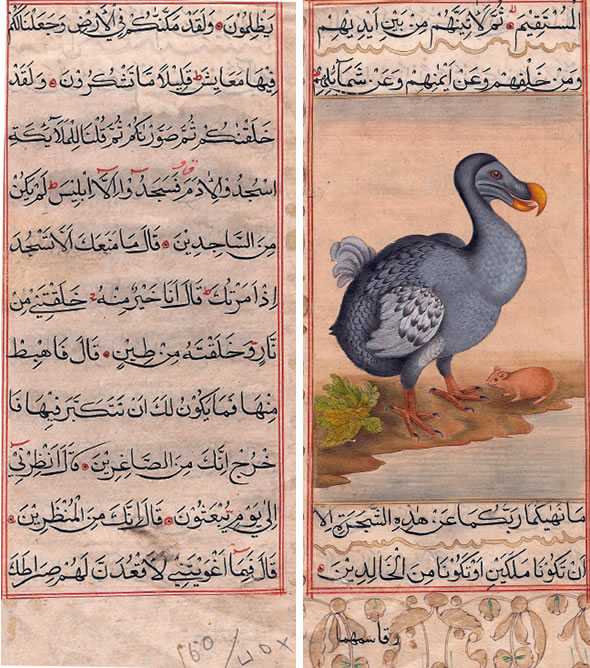 يظلمون ولقد مكنكم في الارض وجعلنا لكم
فيها معايش قليلا ما تشكرون ولقد
خلقنكم ثم صورناكم ثم قلنا للملآيكة
اسجدوا لادم فسجدوا الا ابليس لم يكن
من الساجدين قال ما منعك الا تسجد
اذ امرتك قال انا خير منه خلقتني من
نار وخلقته من طين قال فاهبط
منها فما يكون لك ان تتكبر فيها فا
خرج انك من الصاغرين قال انظرني
الى يوم يبعثون قال انك من المنظرين
قال فبما اغويتني لاقعدن لهم صراطك
المستقيم ثم لاتينهم من بين ايديهم
ومن خلفهم وعن ايمنهم وعن شمائلهم
ما نهيكما ربكما عن هذه الشجرة الا
ان تكونا ملكين او تكونا من الخالدين
وقاسمهما